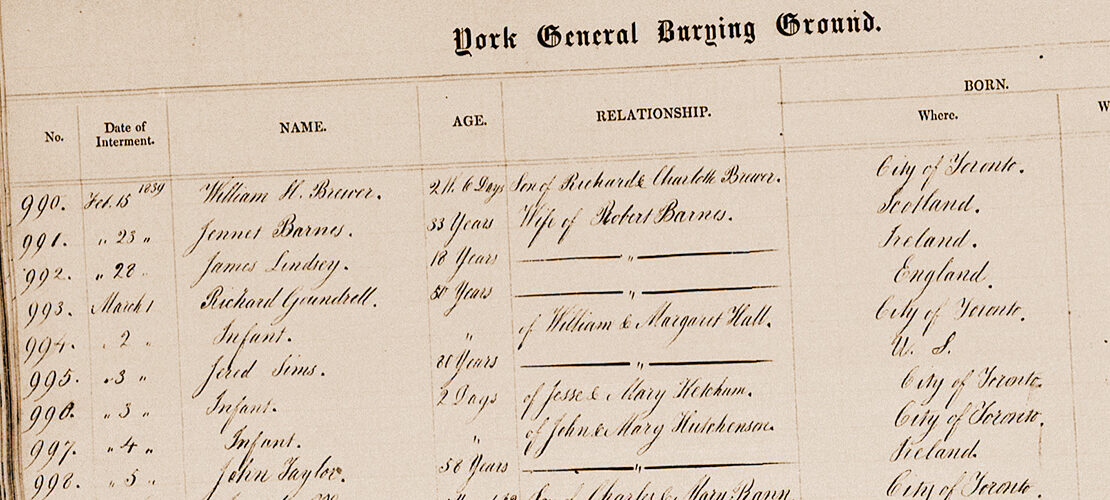 York General Burying Ground.
No. Date of Interment. NAME. AGE. RELATIONSHIP. BORN. Where. W
990. Feb. 15 1839 William H. Brewer. 6 Days Son of Richard & Charlotte Brewer. City of Toronto.
991. " 23 " Jennet Barnes. 33 Years Wife of Robert Barnes. Scotland.
992. " 28 " James Lindsey. 18 Years " Ireland.
993. March 1 Richard Goundrell. 50 Years " England.
994. " 2 " Infant. " of William & Margaret Hall. City of Toronto.
995. " 3 " Jered Sims. 20 Years " U. S.
996. " 3 " Infant. 2 Days of Jesse & Mary Ketchum. City of Toronto.
997. " 4 " Infant. " of John & Mary Hutchenson. City of Toronto.
998. " 5 " John Taylor. 58 Years " Ireland.
Son of Charles & Mary City of Toronto.